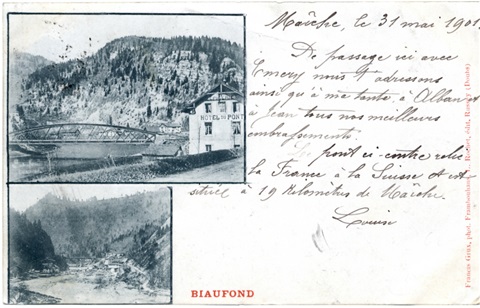 Maîche, le 31 mai 1901.
De passage ici avec
Emery nous t'adressons
ainsi qu'à ma tante, à Alban et
à Jean tous nos meilleurs
embrassements.
Le pont ci-contre relie
la France à la Suisse et est
située à 19 kilomètres de Maîche.
Louise
HOTEL DU PONT
BIAUFOND
phot.
édit.
(Doubs)